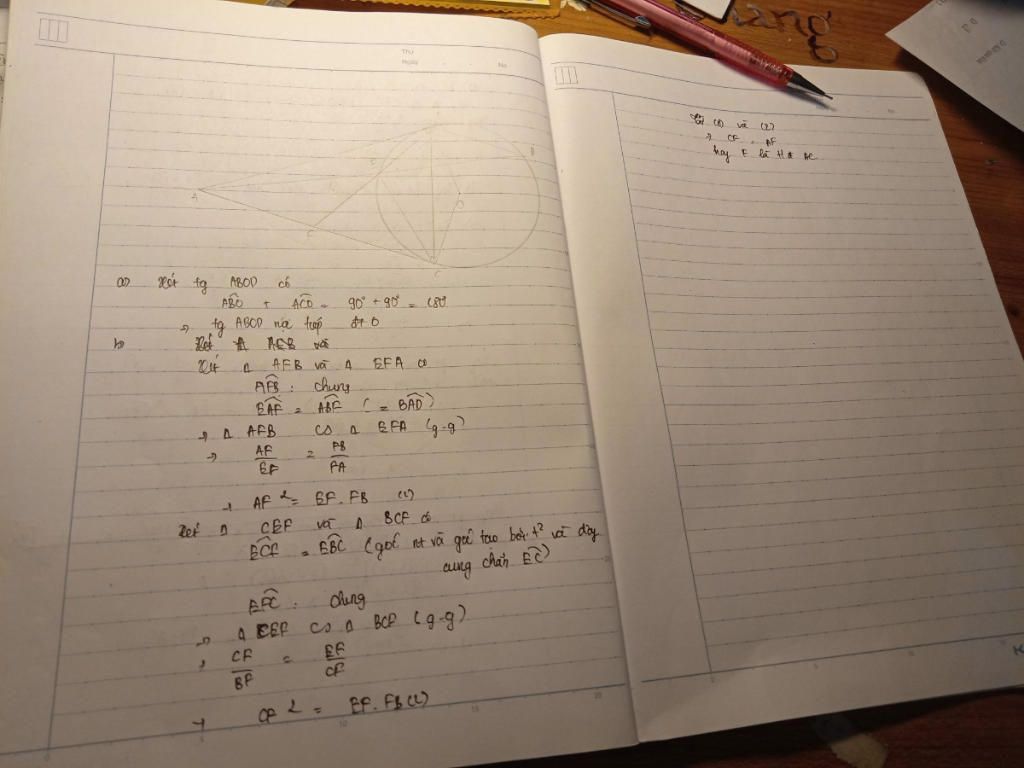 Thứ
Ngày
No
A
B
C
D
a) Xét tg ABOD có
ABO + ACO = 90° + 90° = 180°
⇒ tg ABOD nội tiếp đt O
b) Xét Δ AEB và
Xét Δ AFB và Δ EFA có
AFB : chung
EAF = ABF ( = BAD )
⇒ Δ AFB ∽ Δ EFA (g-g)
⇒ AF/EF = FB/FA
→ AF² = EF . FB (1)
Xét Δ CEF và Δ BCF có
ECF = EBC (góc nt và góc tạo bởi t² và dây
cung chắn EC)
EFC : chung
⇒ Δ CEF ∽ Δ BCF (g-g)
⇒ CF/BF = EF/CF
→ CF² = EF . FB (2)
Từ (1) và (2)
⇒ CF = AF
hay F là tđ AC